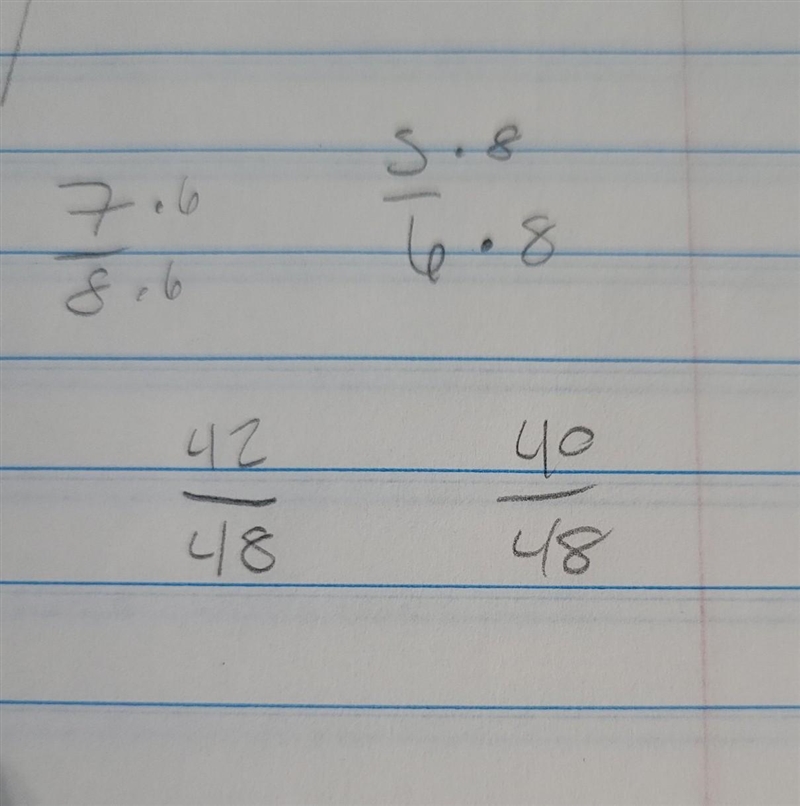 7 · 6
8 · 6
5 · 8
6 · 8
42
48
40
48